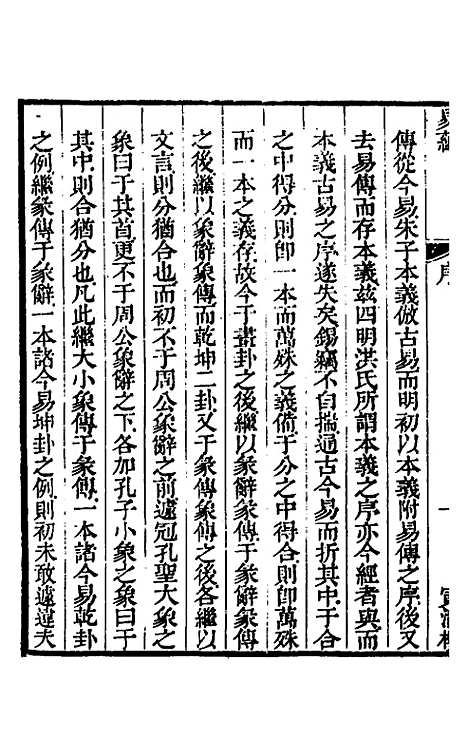 序 一
傳從今易朱子本義倣古易而明初以本義附易傳之序後又
去易傳而存本義茲四明洪氏所謂本義之序亦今經者與而
本義古易之序遂失矣錫不自揣通古今易而折其中于合
之中得分則卽一本而萬殊之義備于分之中得合則卽萬殊
而一本之義存故今于畫卦之後繼以彖辭彖傳于彖辭彖傳
之後繼以象辭象傳而乾坤二卦又于彖傳象傳之後各繼以
文言則分猶合也而初不于周公象辭之前遽冠孔聖大象之
象曰于其首更不于周公象辭之下各加孔子小象之象曰于
其中則合猶分也凡此繼大小象傳于彖傳一本諸今易乾卦
之例繼彖傳于彖辭一本諸今易坤卦之例則初未敢遽違夫